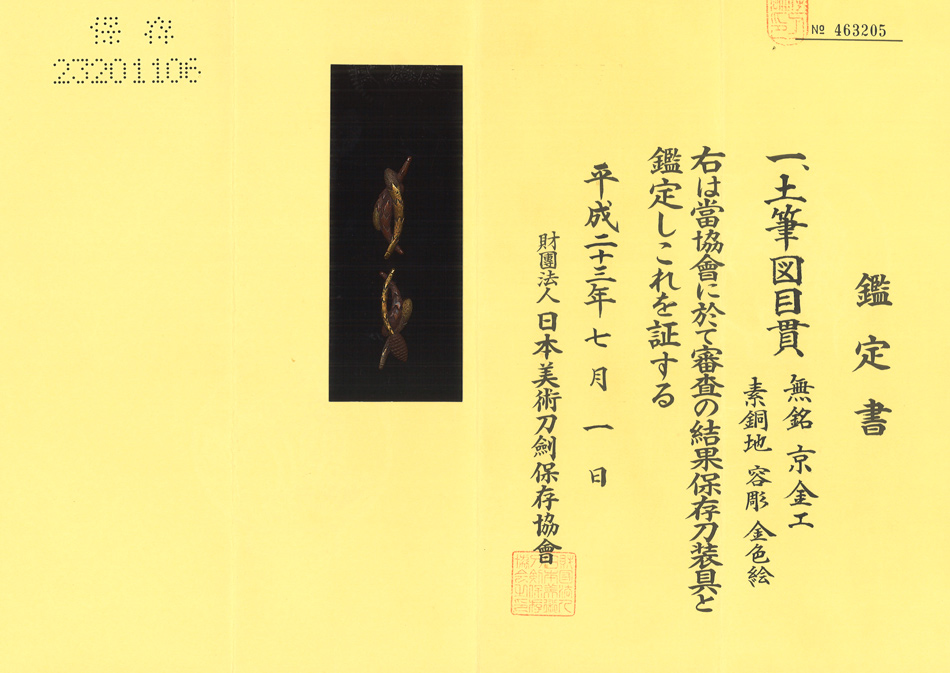 鑑定書
一、土筆図目貫
無銘 京金工
素銅地 容彫 金色絵
右は當協會に於て審査の結果保存刀装具と
鑑定しこれを証する
平成二十三年七月一日
財團法人日本美術刀劍保存協會
№ 463205
保存
23201106